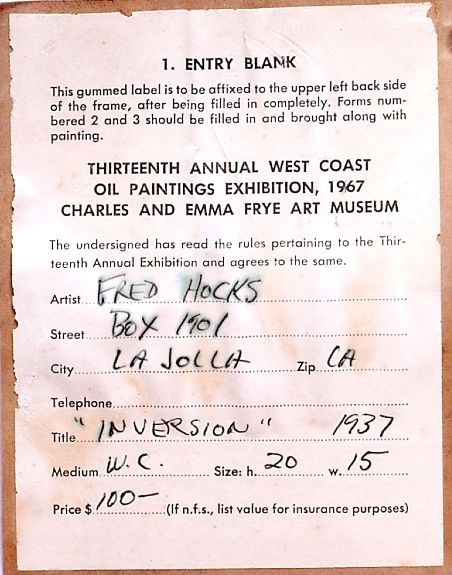 1. ENTRY BLANK
This gummed label is to be affixed to the upper left back side
of the frame, after being filled in completely. Forms num-
bered 2 and 3 should be filled in and brought along with
painting.
THIRTEENTH ANNUAL WEST COAST
OIL PAINTINGS EXHIBITION, 1967
CHARLES AND EMMA FRYE ART MUSEUM
The undersigned has read the rules pertaining to the Thir-
teenth Annual Exhibition and agrees to the same.
Artist FRED HOCKS
Street BOX 1901
City LA JOLLA Zip CA
Telephone
Title "INVERSION" 1937
Medium W.C. Size: h. 20 w. 15
Price $ 100- (If n.f.s., list value for insurance purposes)